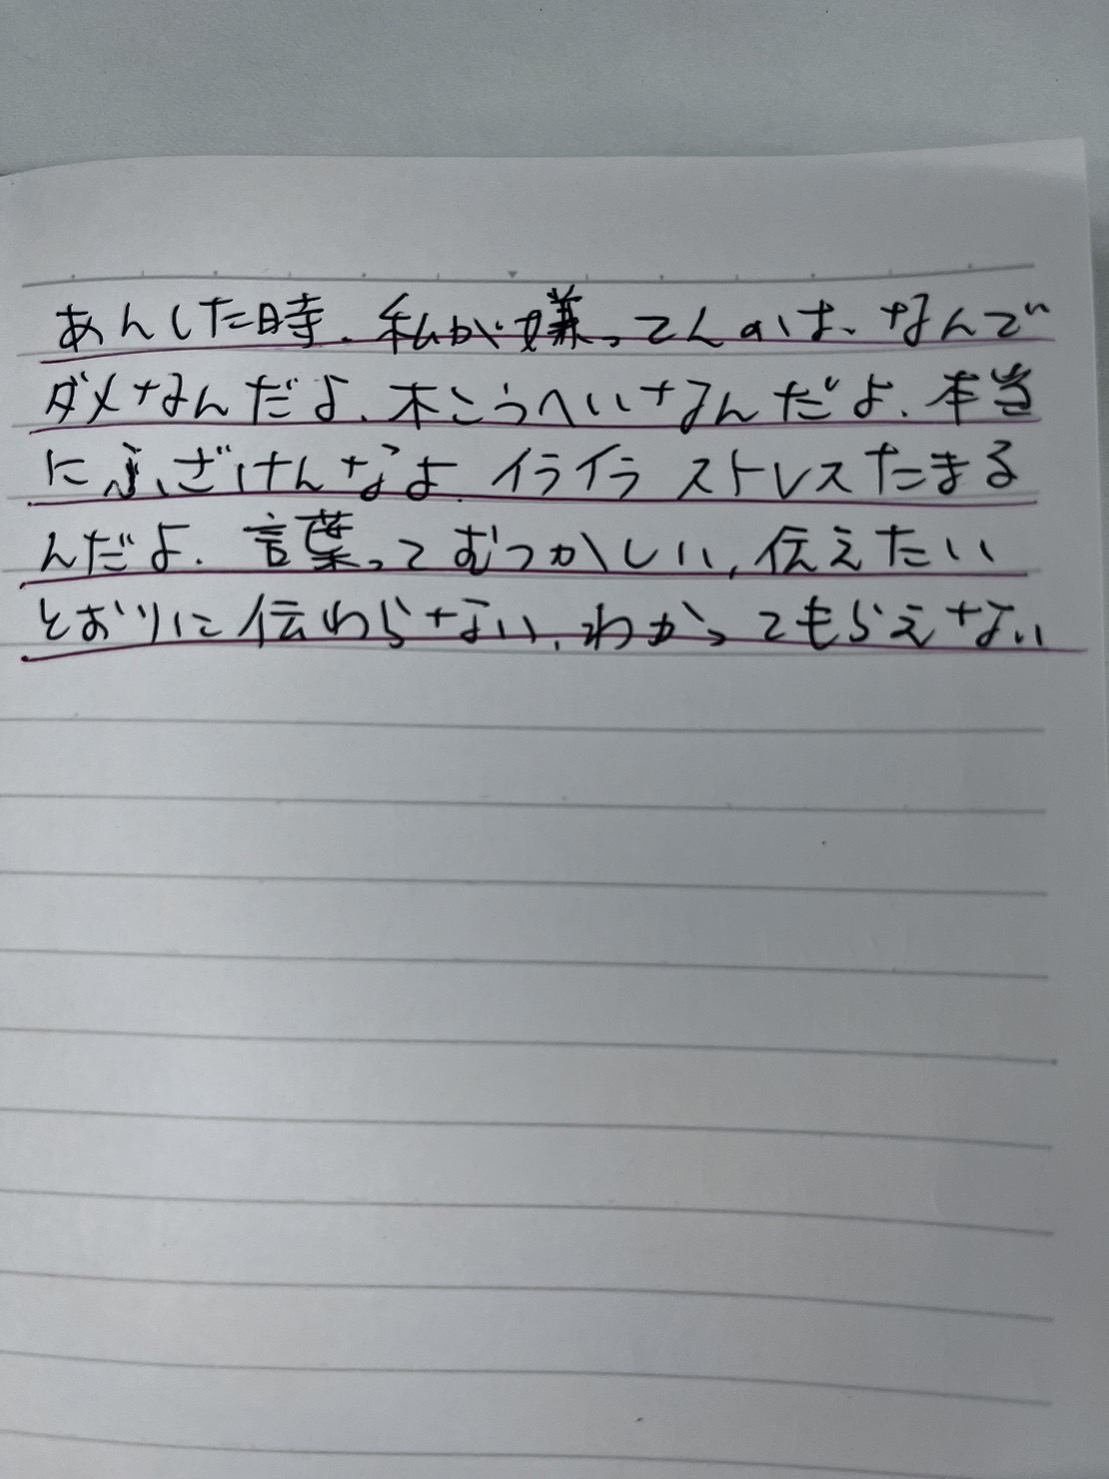 あんした時、私が嫌ってんのは、なんで
ダメなんだよ、不こうへいなんだよ、本当
にふざけんなよ、イライラ ストレスたまる
んだよ、言葉ってむつかしい、伝えたい
とおりに伝わらない、わかってもらえない